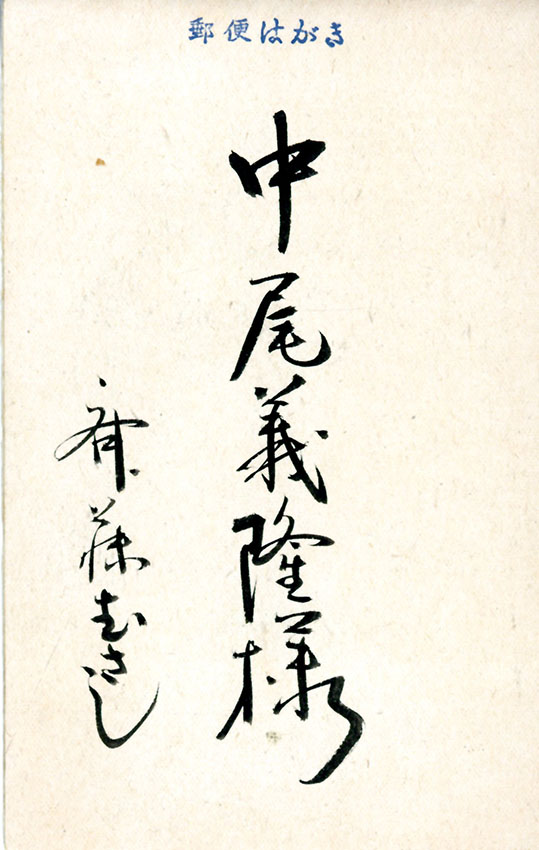 郵便はがき
中尾義隆様
斎藤むさし